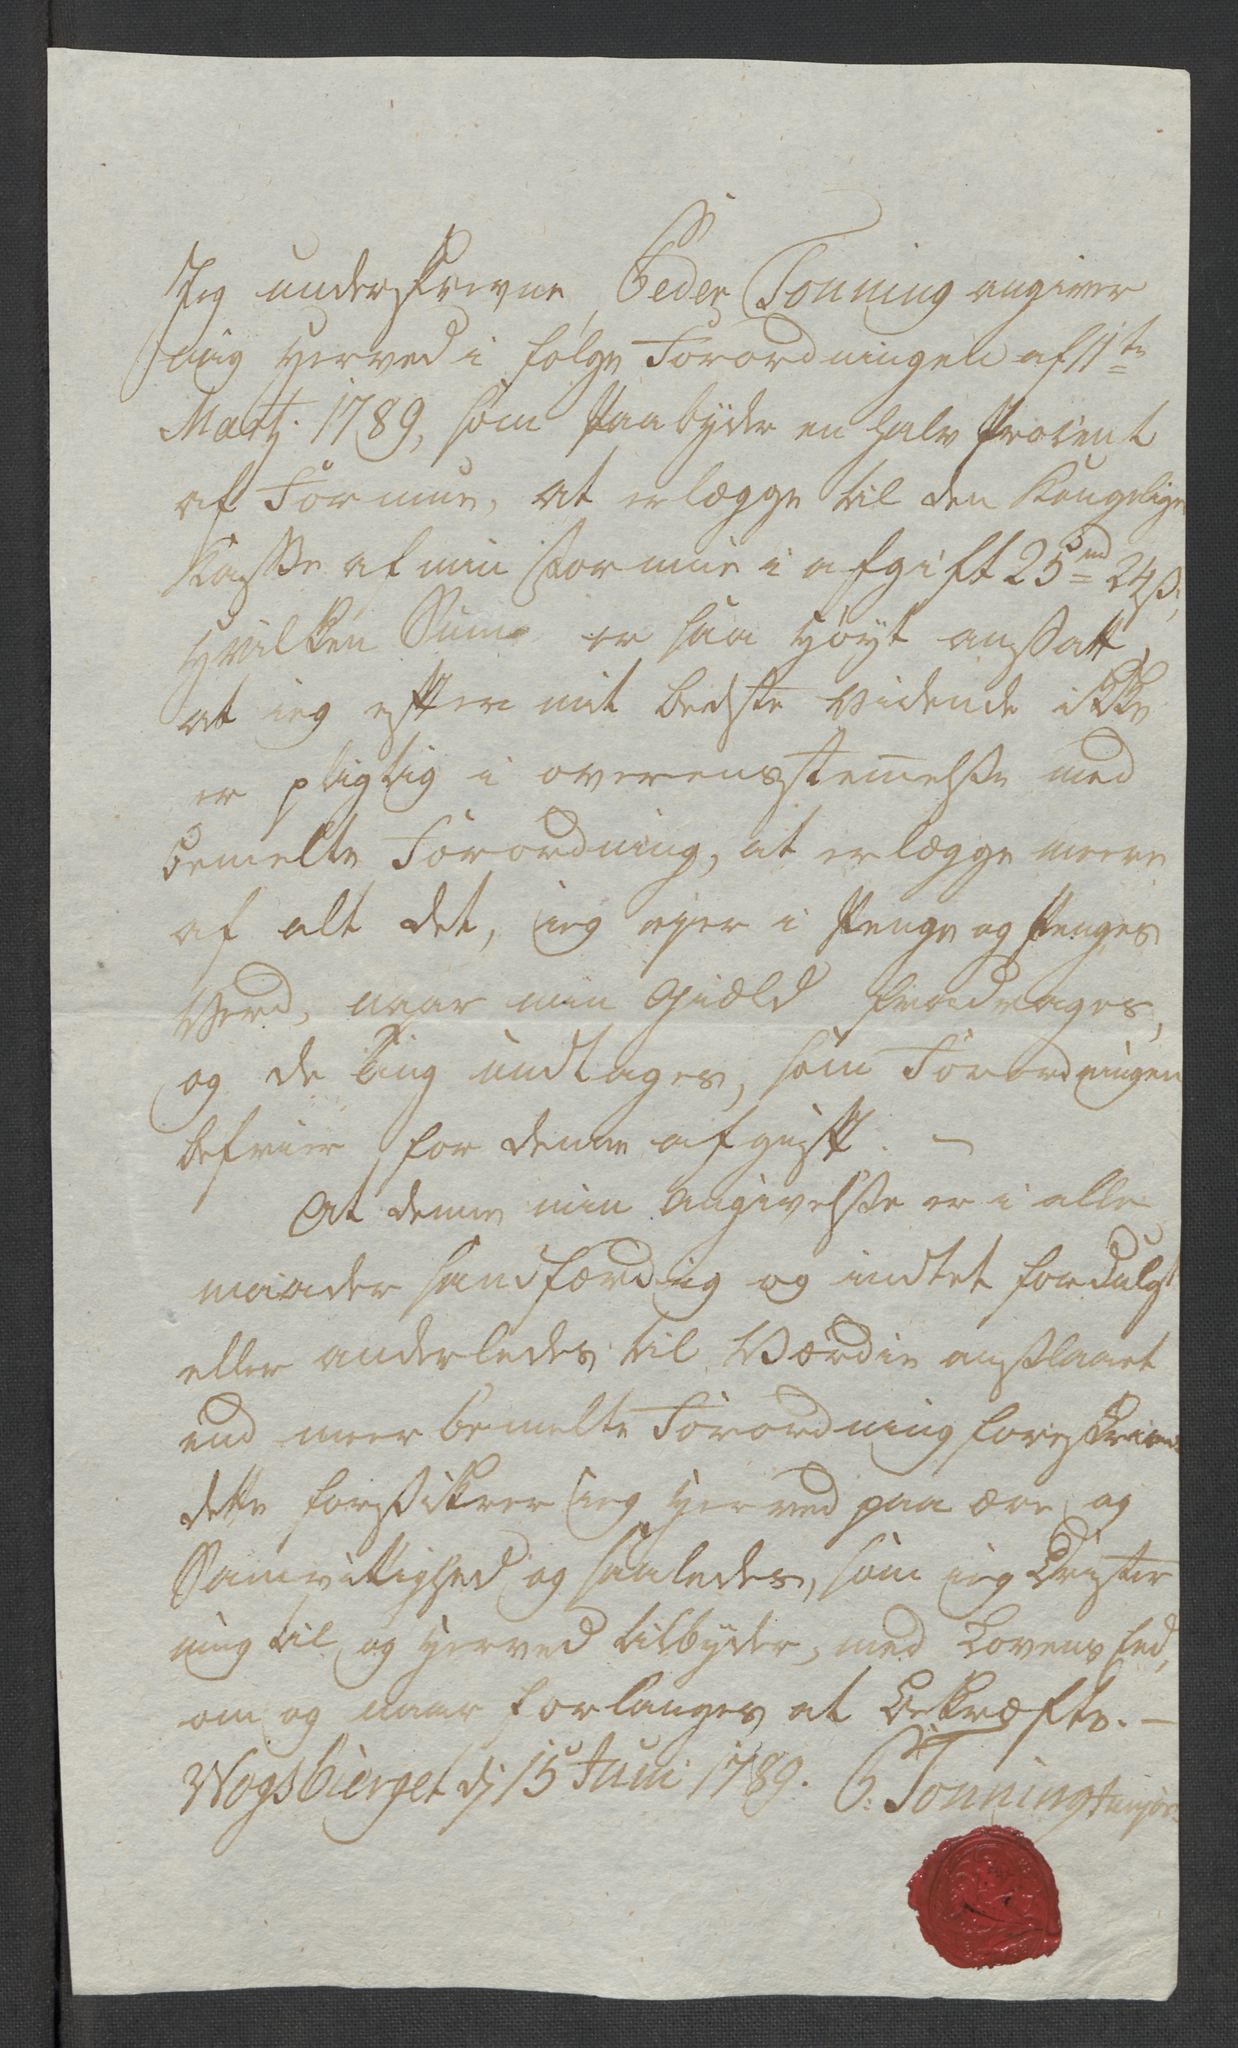 Jeg underskrevne, Peder Tonning angiver
mig herved i følge Forordningen af 11te
Martz. 1789, som Paabyder en halv Procent
af Formue, at erlægge til den Kongelige
Kasse af min Formue i afgift 25 rd 24 ß;
hvilken Sum er saa høyt ansatt,
at ieg efter mit bedste Vidende ikke
er pligtig i overensstemelse med
bemelte Forordning, at erlægge meere
af alt det, ieg ejer i Penge og Penges
Verd, naar min Giæld fradrages,
og de Ting undtages, som Forordningen
befrier for denne afgift. —
At denne min Angivelse er i alle
maader sandfærdig og indtet fordulgt
eller anderledes til Værdie anslaaet
end meer bemelte Forordning foreskriver
dette forsikrer ieg herved paa ære og
Samvittighed og saaledes, som ieg trister
mig til og herved tilbyder, med Lovens Eed,
om og naar forlanges at bekræfte. —
Wogsbierget dj 15 Juni 1789. P: Tonning Junior.